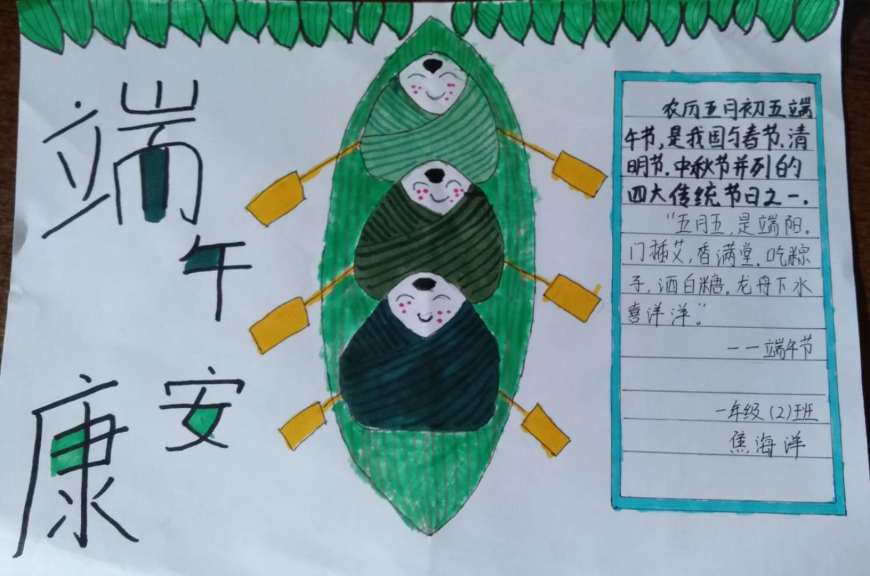 端午
安康
农历五月初五端
午节,是我国与春节、清
明节、中秋节并列的
四大传统节日之一.
"五月五,是端阳.
门插艾,香满堂.吃粽
子,洒白糖.龙舟下水
喜洋洋."
——端午节
一年级(2)班
焦海洋